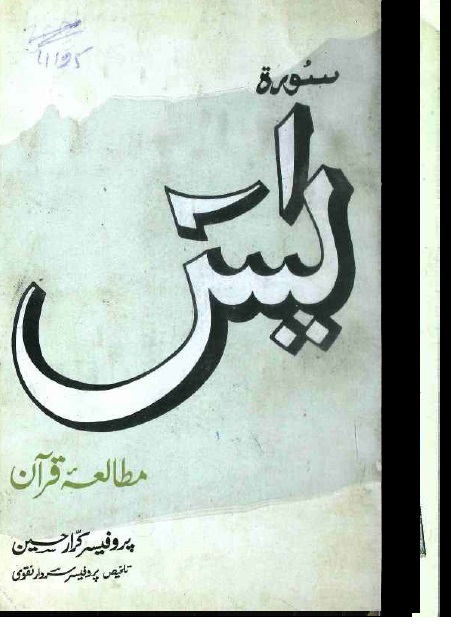 سُورة
یٰسٓ
مطالعۂ قرآن
پروفیسر کرّار حسین
تلخیص پروفیسر سردار نقوی